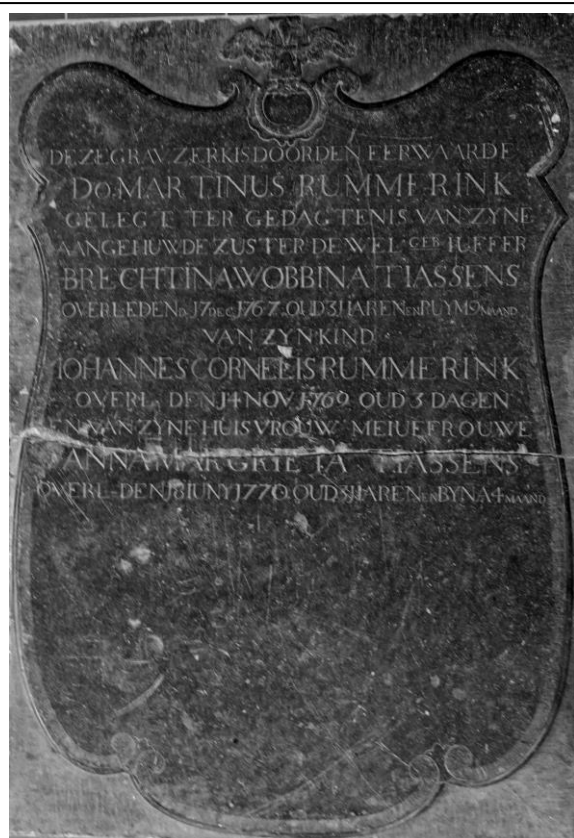 DEZE GRAV ZERK IS DOOR DEN EERWAARDE
Do. MARTINUS RUMMERINK
GELEGT TER GEDAGTENIS VAN ZYNE
AANGEHUWDE ZUSTER DE WEL GEB IUFFER
BRECHTINA WOBBINA TIASSENS
OVERLEDEN D. 17 DEC 1767. OUD 31 IAREN EN RUYM 9 MAAND
VAN ZYN KIND
IOHANNES CORNELIS RUMMERINK
OVERL. DEN 14 NOV 1769 OUD 3 DAGEN
EN VAN ZYNE HUISVROUW MEIUFFROUWE
ANNA MARGRIETA TIASSENS
OVERL. DEN 18 IUNY 1770. OUD IAREN EN BYNA 4 MAAND